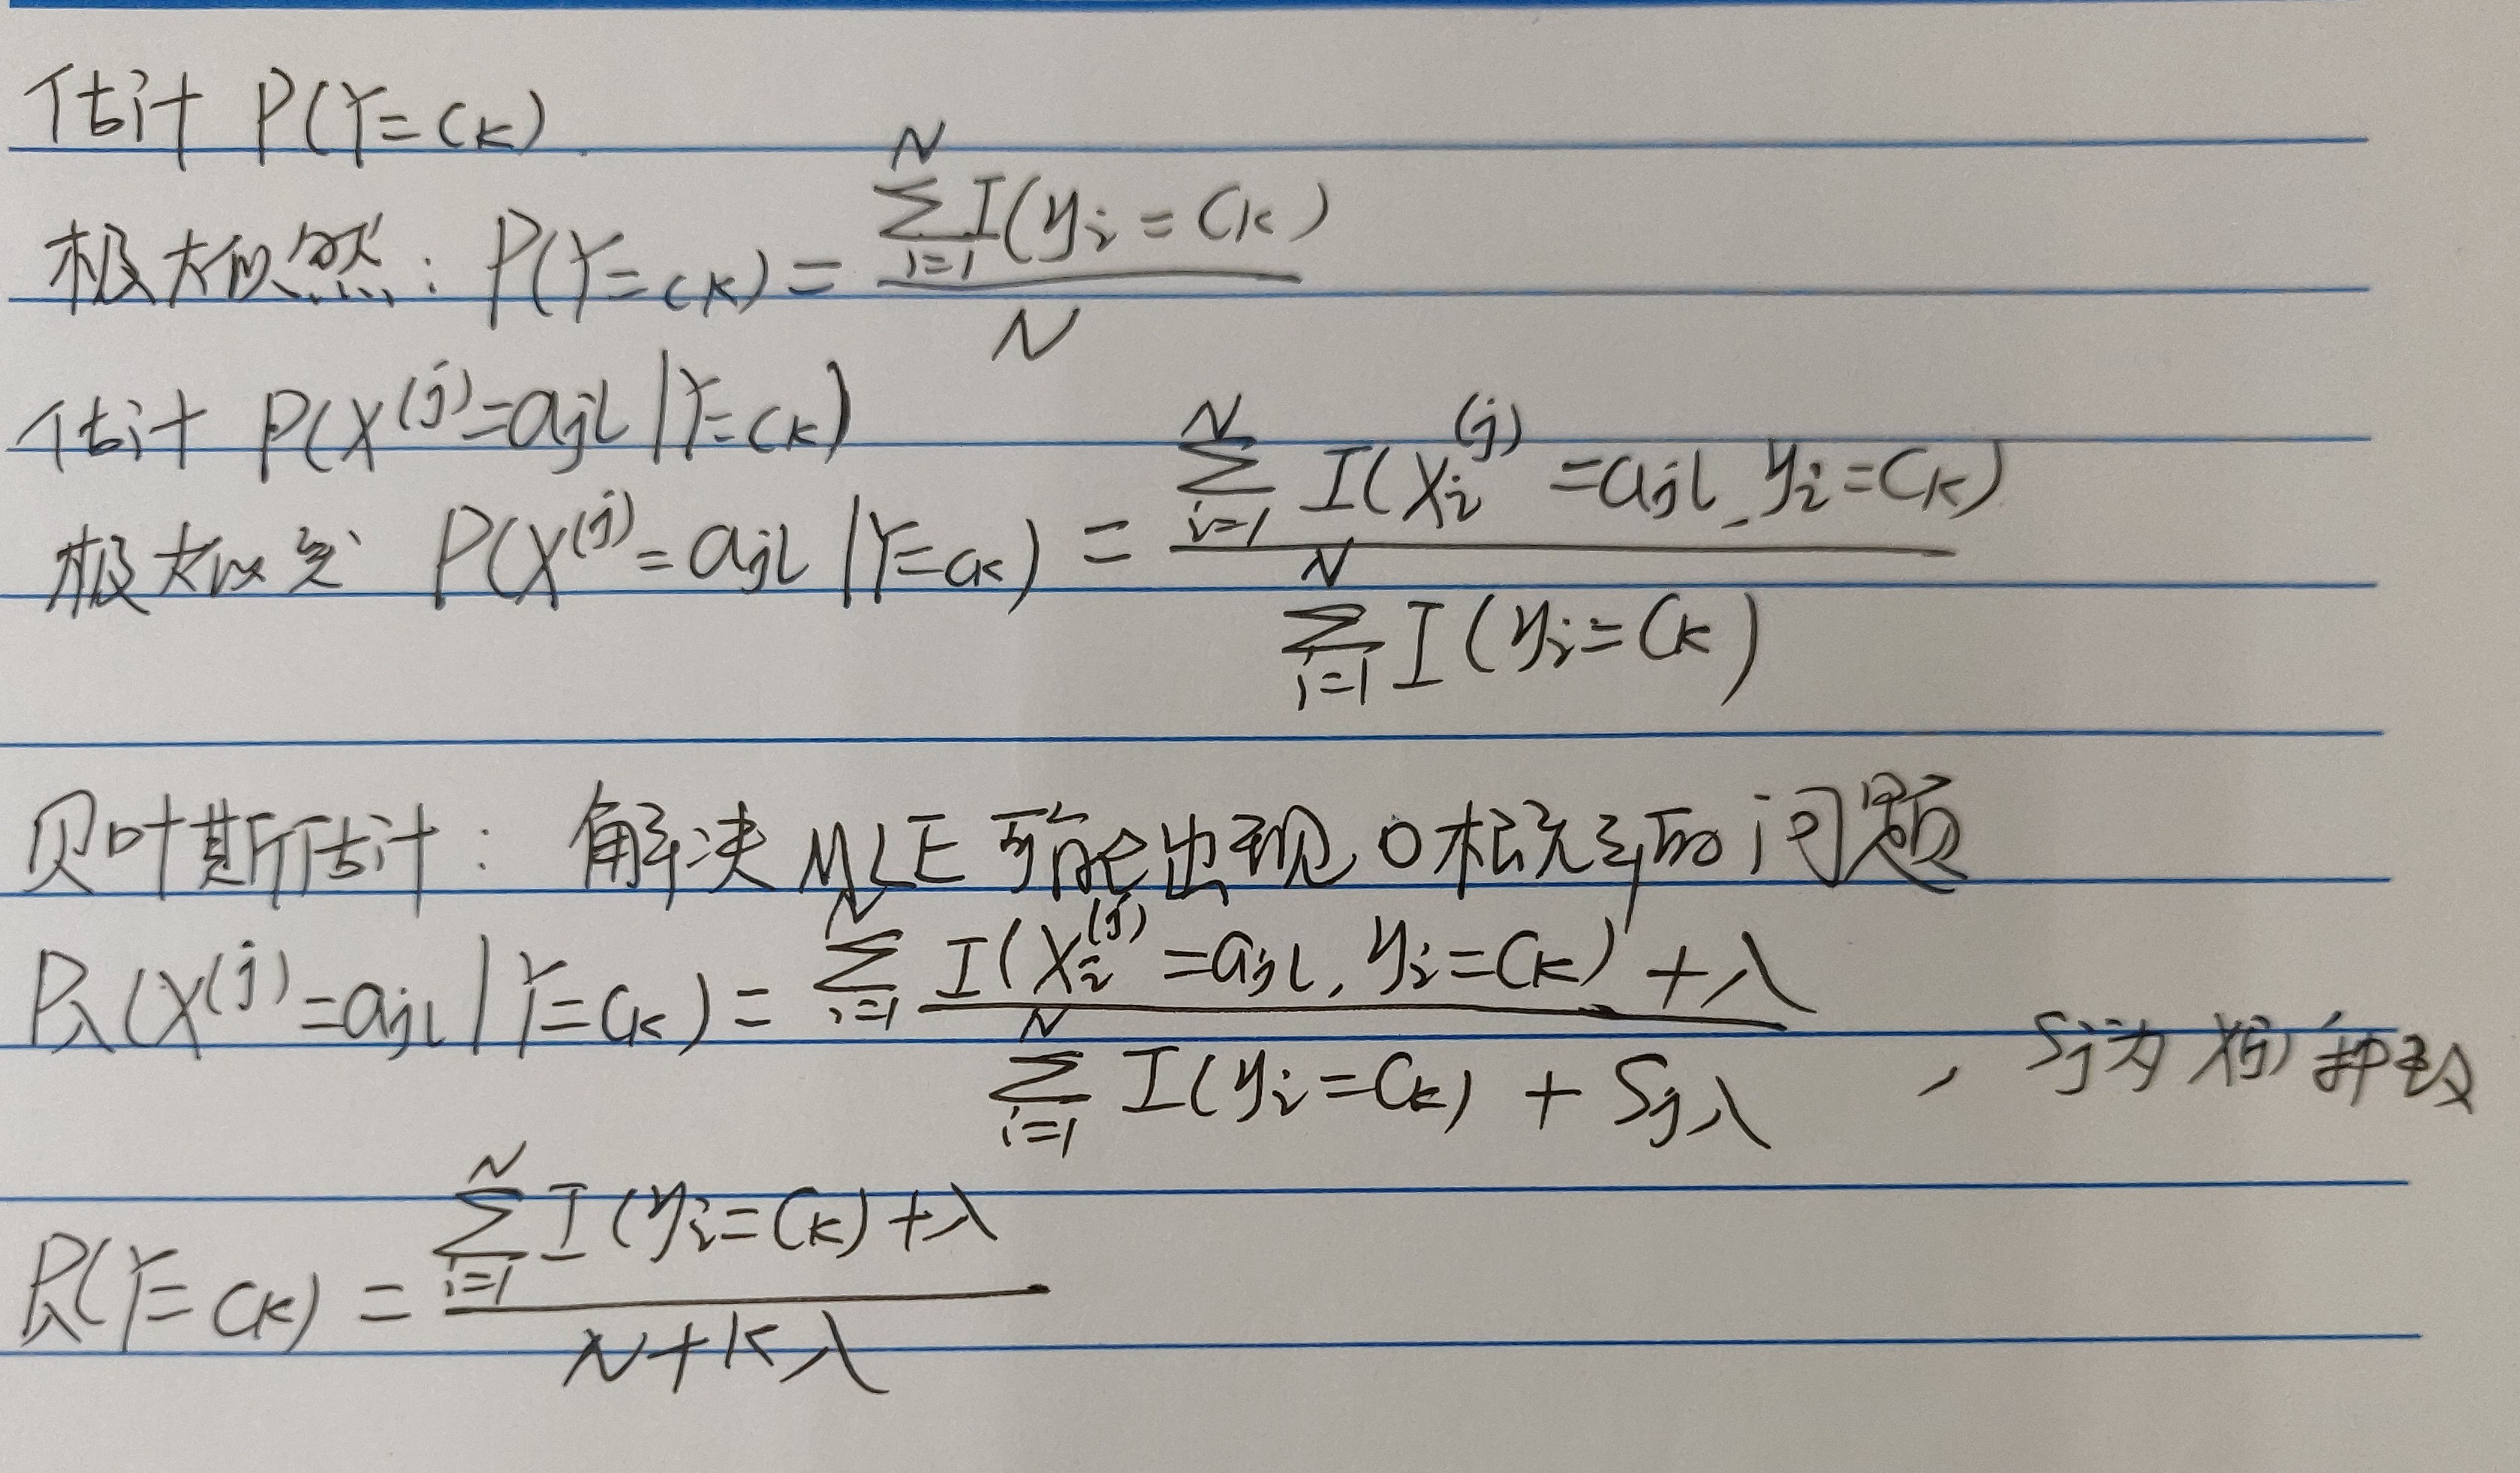 估计 P(Y=Ck)
极大似然: P(Y=Ck) = \frac{\sum_{i=1}^{N} I(y_i=C_k)}{N}
估计 P(X^{(j)}=a_{jl} | Y=C_k)
极大似然 P(X^{(j)}=a_{jl} | Y=C_k) = \frac{\sum_{i=1}^{N} I(X_i^{(j)}=a_{jl}, y_i=C_k)}{\sum_{i=1}^{N} I(y_i=C_k)}
贝叶斯估计: 解决 MLE 可能出现 0 概率的问题
P_λ(X^{(j)}=a_{jl} | Y=C_k) = \frac{\sum_{i=1}^{N} I(X_i^{(j)}=a_{jl}, y_i=C_k) + λ}{\sum_{i=1}^{N} I(y_i=C_k) + S_jλ} , S_j为 X^{(j)} 种数
P_λ(Y=C_k) = \frac{\sum_{i=1}^{N} I(y_i=C_k) + λ}{N+Kλ}